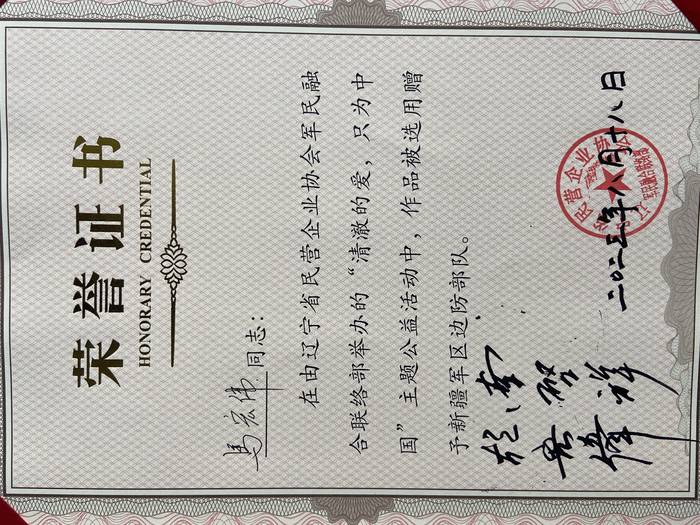 荣誉证书
HONORARY CREDENTIAL
马宏伟同志：
在由辽宁省民营企业协会军民融
合联络部举办的“清澈的爱，只为中
国”主题公益活动中，作品被选用赠
予新疆军区边防部队。
二〇二三年八月十八日